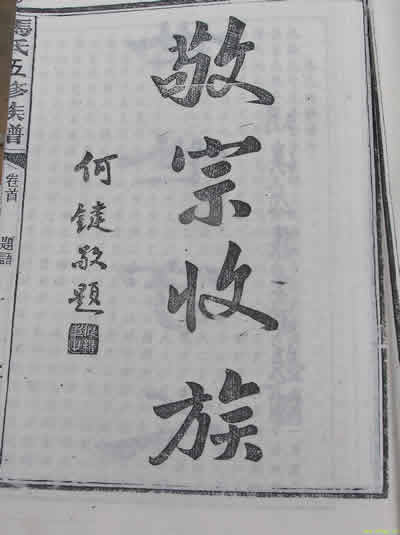 敬宗收族
何鍵敬題
馮氏五修族譜
卷首
題語